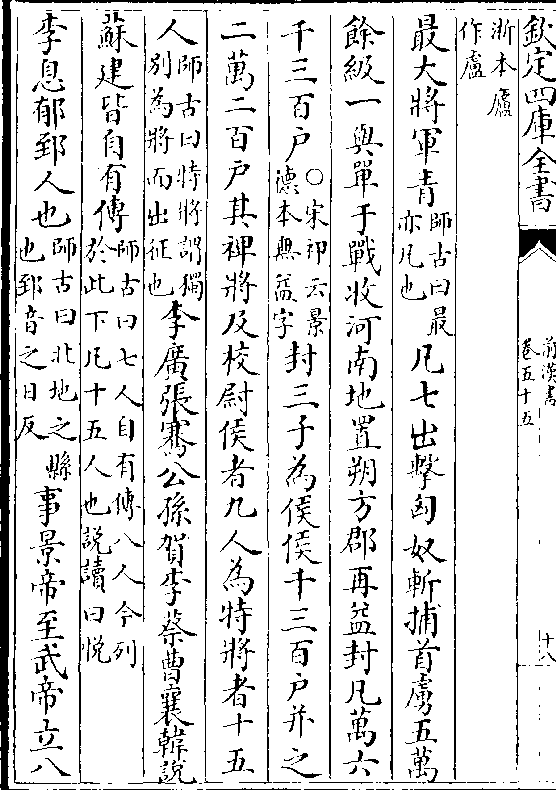 欽定四庫全書
前漢書
卷五十五
十八
浙本廬
作盧
最大將軍青師古曰最
亦凡也凡七出擊匈奴斬捕首虜五萬
餘級一與單于戰收河南地置朔方郡再益封凡萬六
千三百户○宋祁云景
德本無益字封三子為侯侯千三百户并之
二萬二百户其裨將及校尉侯者九人為特將者十五
人師古曰特將謂獨
別為將而出征也李廣張騫公孫賀李蔡曹襄韓說
蘇建皆自有傳師古曰七人自有傳八人今列
於此下凡十五人也說讀曰悅
李息郁郅人也師古曰北地之縣
也郅音之日反事景帝至武帝立八